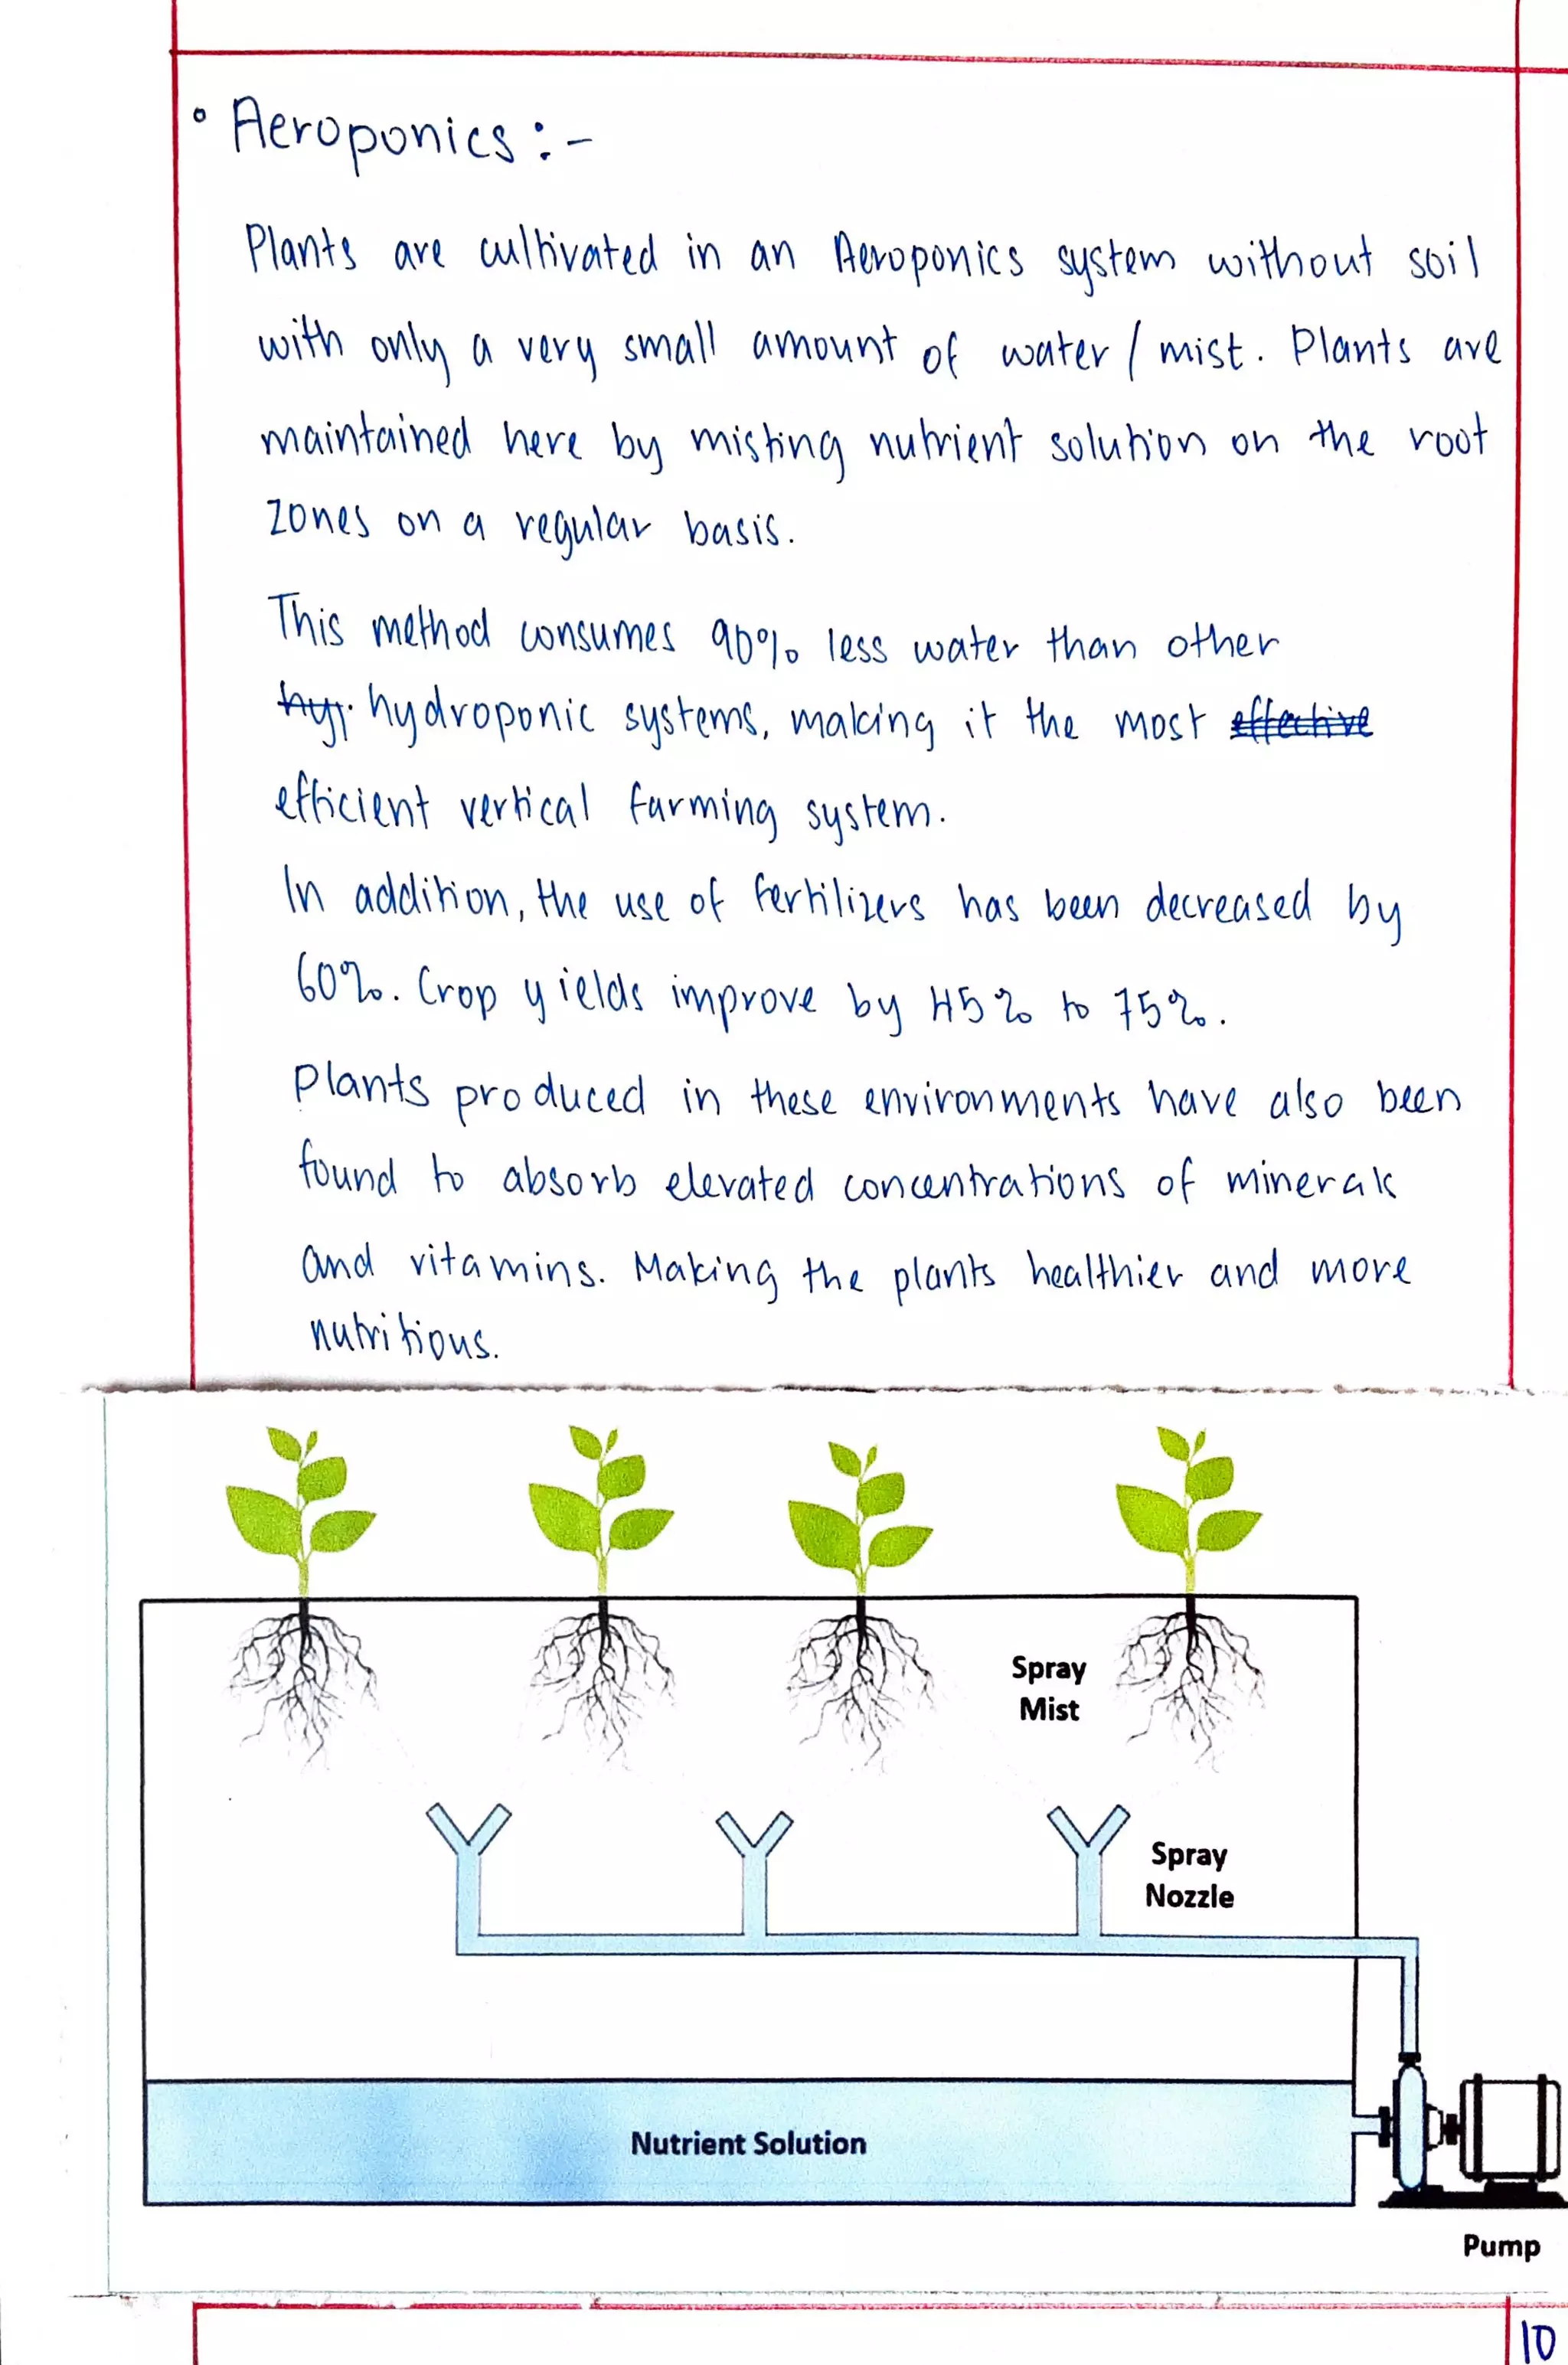 ° Aeroponics :-
Plants are cultivated in an Aeroponics system without soil
with only a very small amount of water / mist. Plants are
maintained here by misting nutrient solution on the root
zones on a regular basis.
This method consumes 90% less water than other
hyr hydroponic systems, making it the most effective
efficient vertical farming system.
In addition, the use of fertilizers has been decreased by
60%. Crop yields improve by 45% to 75%.
Plants produced in these environments have also been
found to absorb elevated concentrations of minerals
and vitamins. Making the plants healthier and more
nutritious.
Spray
Mist
Spray
Nozzle
Nutrient Solution
Pump
10